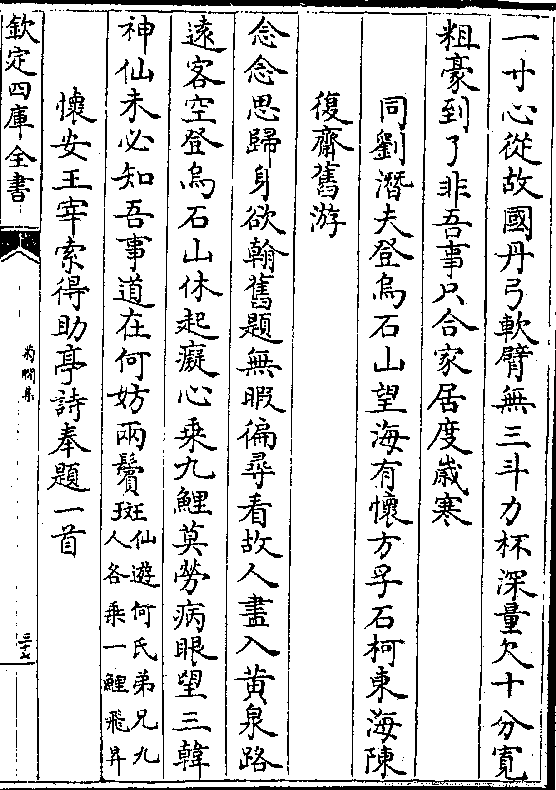 一寸心從故國丹弓軟臂無三斗力杯深量欠十分寬
粗豪到了非吾事只合家居度歲寒
同劉潛夫登烏石山望海有懷方孚石柯東海陳
復齋舊游
念念思歸身欲翰舊題無暇徧尋看故人盡入黃泉路
遠客空登烏石山休起癡心乗九鯉莫勞病眼望三韓
神仙未必知吾事道在何妨兩鬢斑仙遊何氏弟兄九
人各乗一鯉飛昇
懷安王宰索得助亭詩奉題一首
欽定四庫全書